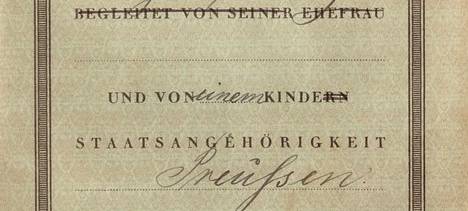 BEGLEITET VON SEINER EHEFRAU
UND VON einem KINDERN
STAATSANGEHÖRIGKEIT
Preußen.